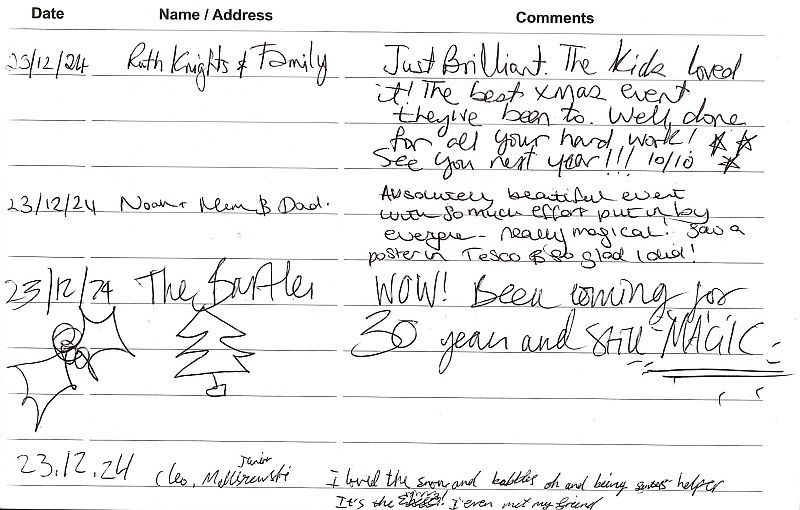 Date Name / Address Comments
23/12/24 Ruth Knights & Family Just Brilliant. The Kids loved
it! The best xmas event
they've been to. Well done
for all your hard work!
See you next year!!! 10/10
23/12/24 Noah + Mum & Dad. Absolutely beautiful event
with so much effort put in by
everyone - really magical! Saw a
poster in Tesco & so glad I did!
23/12/24 The WOW! Been coming for
30 years and still MAGIC
23.12.24 Cleo, Junior I loved the snow and baubles oh and being santas helper
It's the I even met my friend